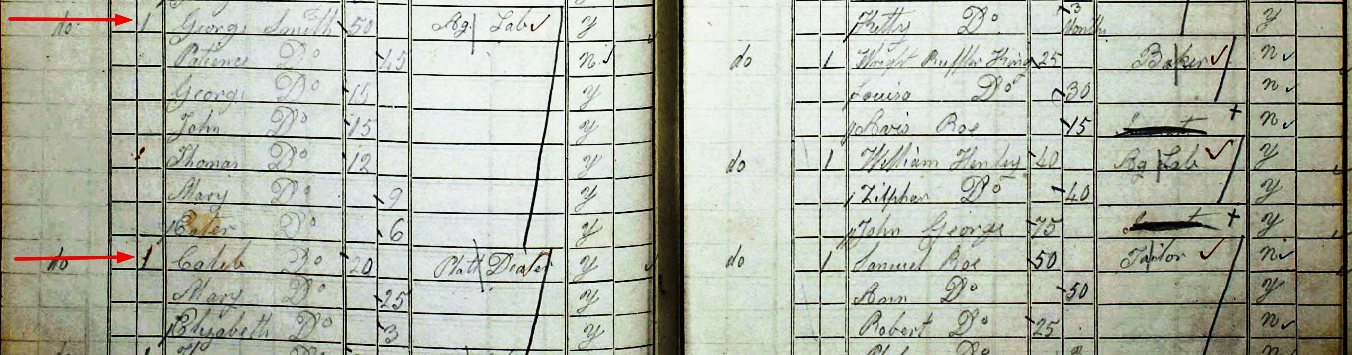 do 1 George Smith 50 Ag Lab ✓ y
Patience Do 45 n
George Do 15 y
John Do 15 y
Thomas Do 12 y
Mary Do 9 y
Ester Do 6 y
do 1 Caleb Do 20 Platt Dealer y
Mary Do 25 y
Elizabeth Do 3 y
Kitty Do 3 Months y
do 1 25 Baker ✓ n
Louisa Do 30 n
Roe 15 + n
do 1 William Henley 40 Ag Lab ✓ y
Zilphar Do 40 y
John George 75 + y
do 1 Samuel Roe 50 Tailor ✓ n
Ann Do 50 y
Robert Do 25 n